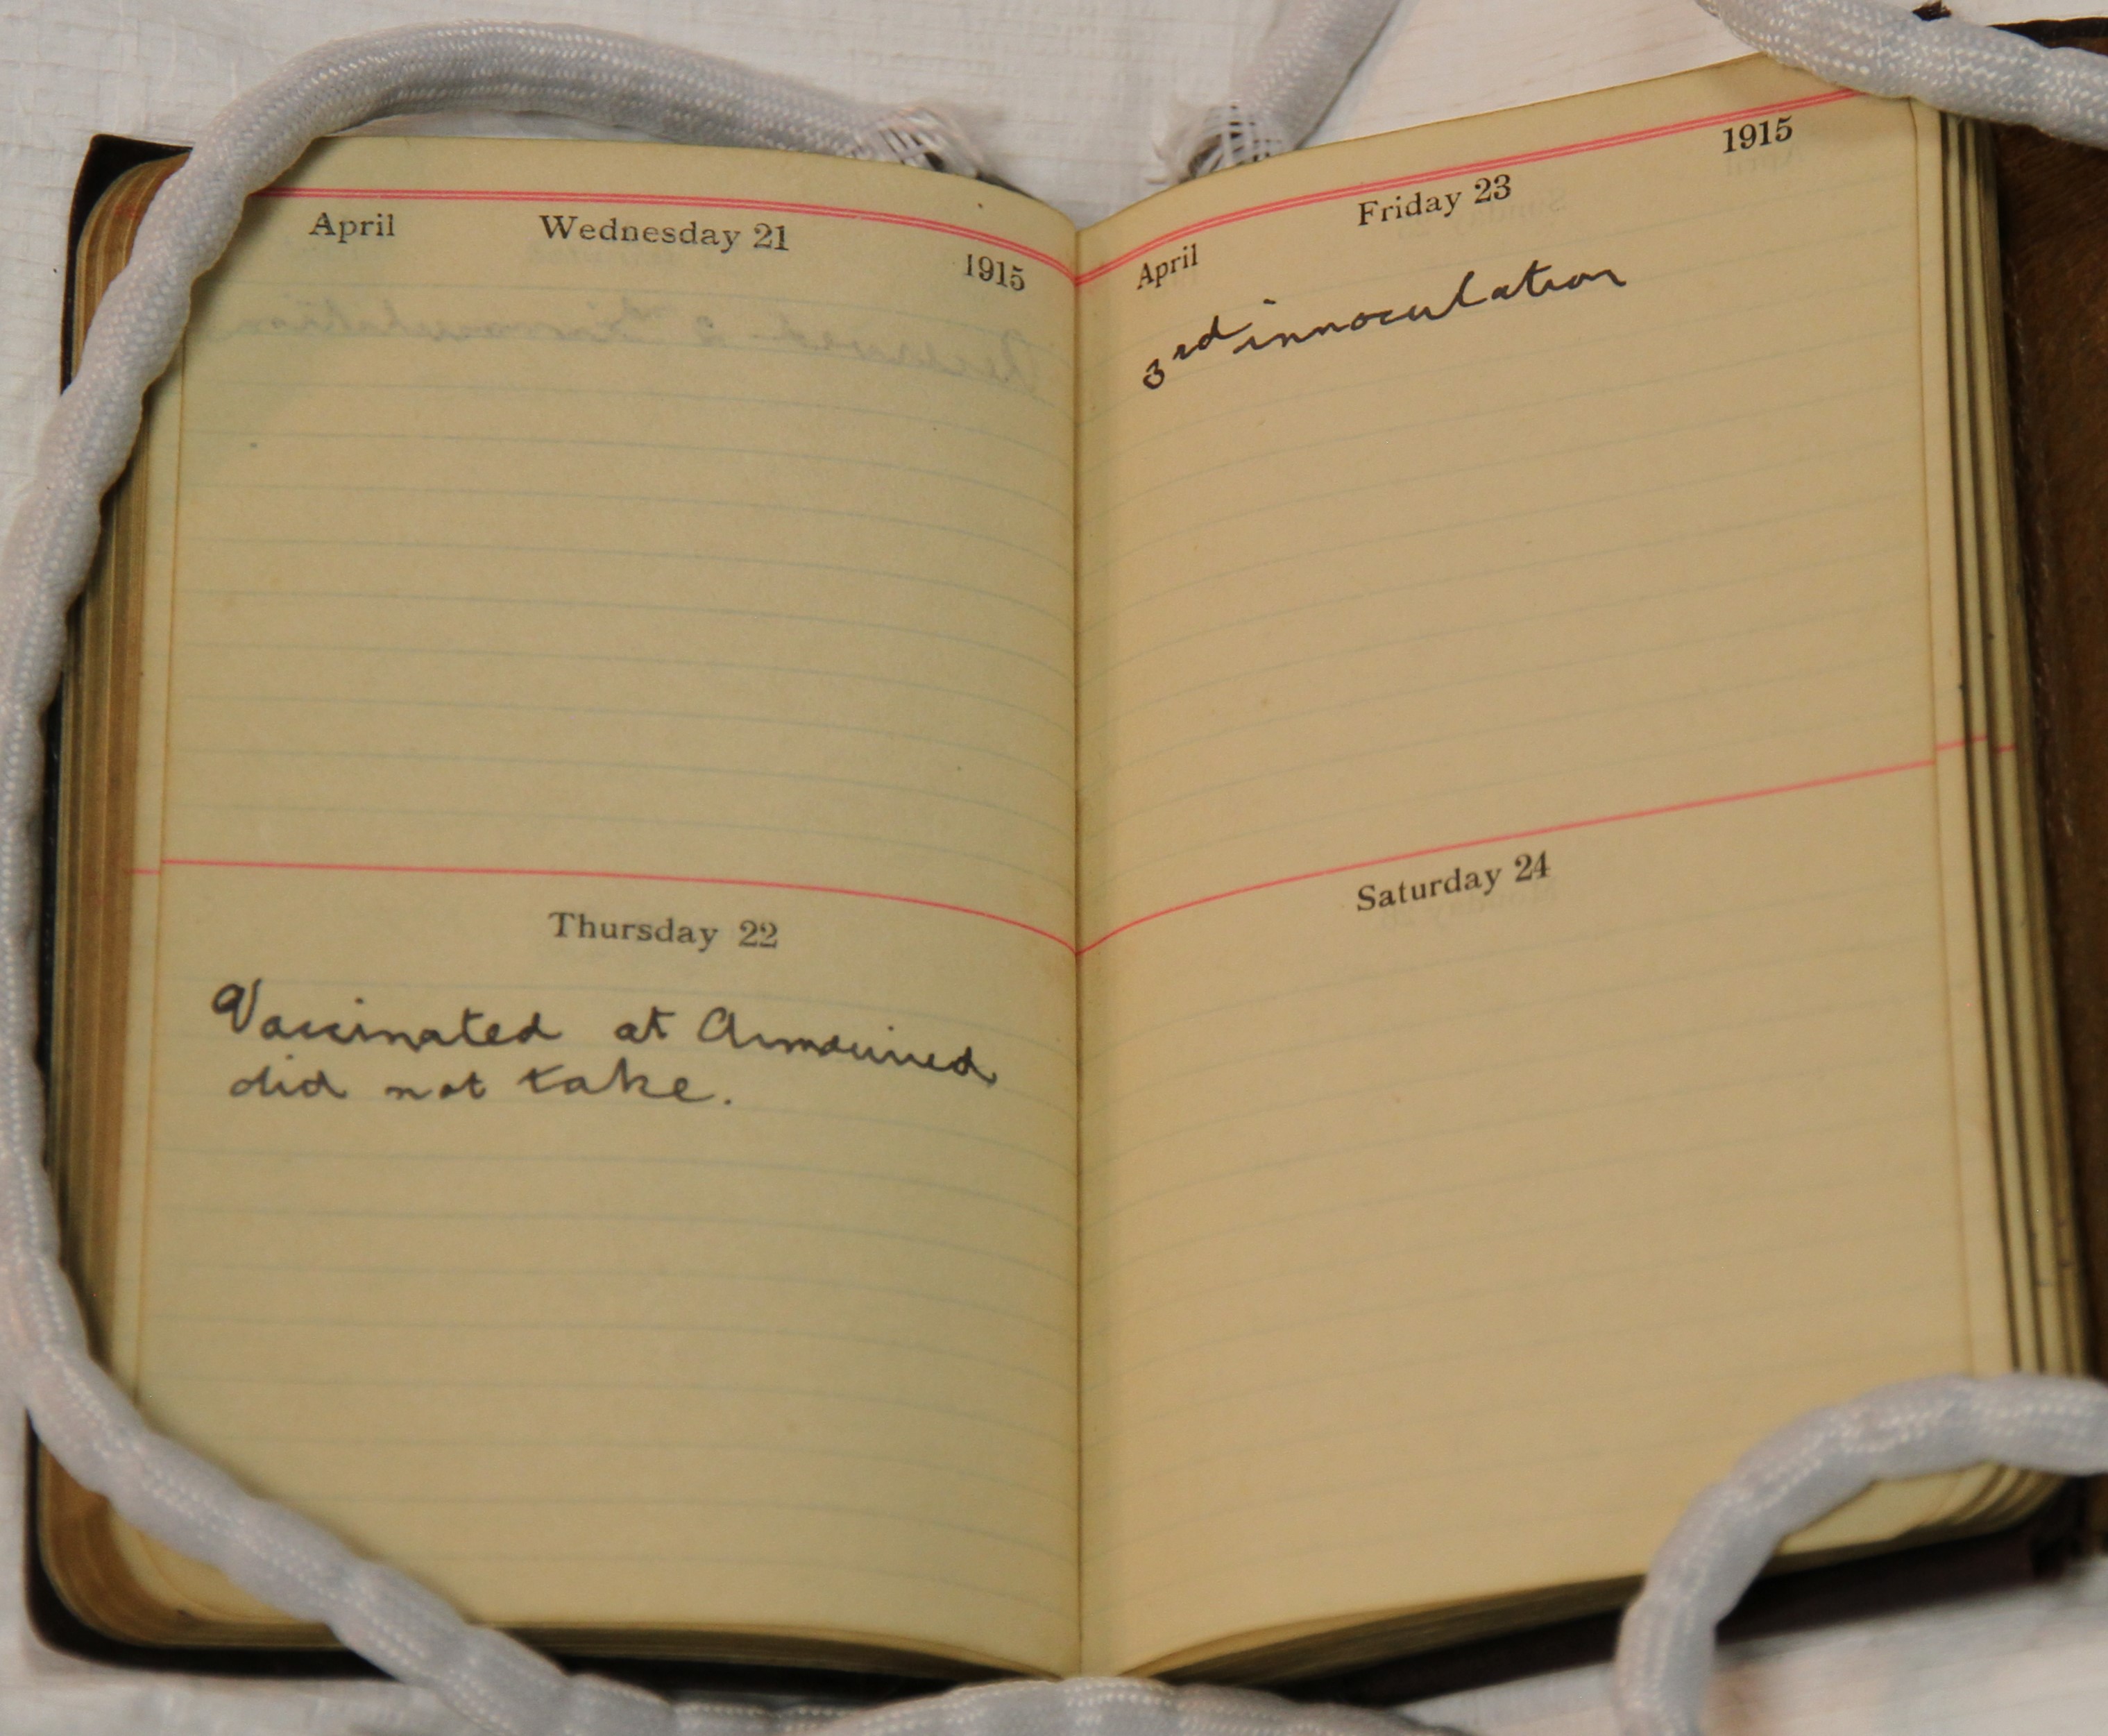 April Wednesday 21 1915
Thursday 22
Vaccinated at
did not take.
April Friday 23 1915
3rd innoculation
Saturday 24